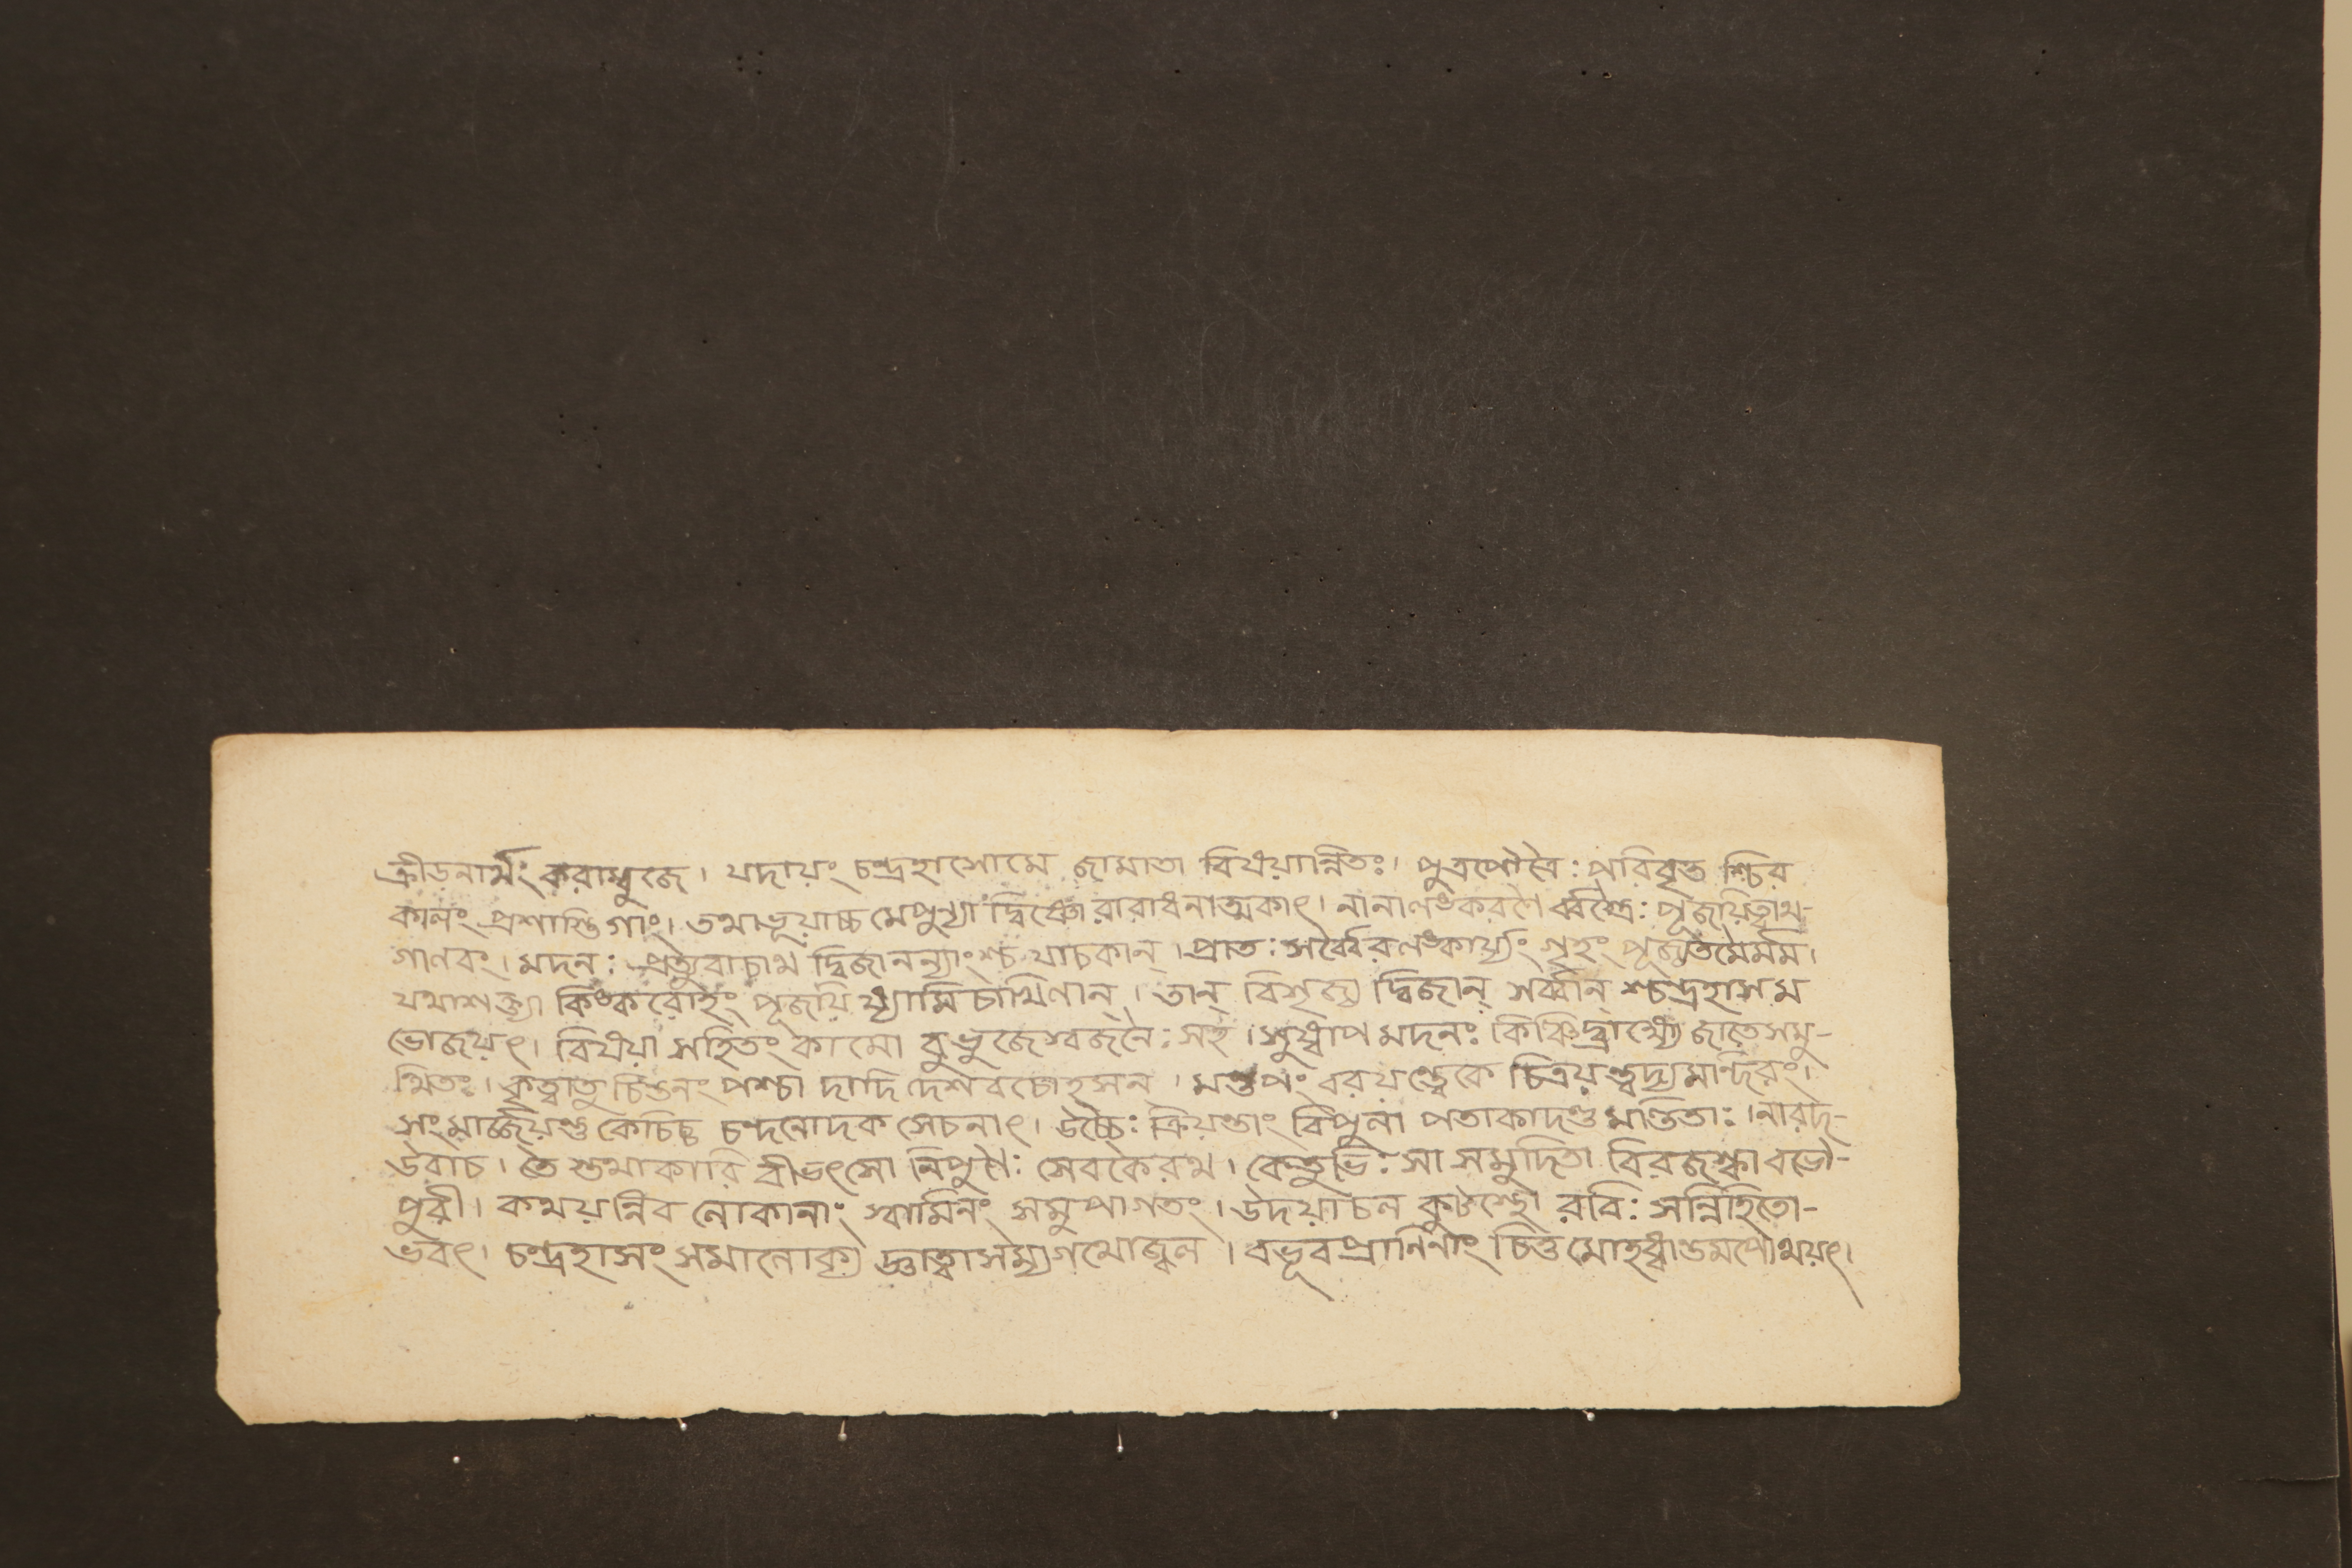 ক্রীডনার্থং করাম্বুজে। যদায়ং চন্দ্রহাসোমে জামাতা বিষয়ান্নিতঃ। পুত্রপৌত্রৈঃ পরিবৃত শ্চির
কালং প্রশাস্তি গাং। তথাভূয়াচ্চ মেপুণ্যা দ্বিষ্ণো রারাধনাত্মকাৎ। নানালঙ্করণৈ র্ব্বস্ত্রৈঃ পূজয়িত্বাথ-
গালবং। মদনঃ প্রত্যুবাচাথ দ্বিজানন্যাংশ্চ যাচকান্। প্রাতঃ সর্ব্বৈরলঙ্কার্য্যং গৃহং পূজ্যতমৈর্মম।
যথাশক্ত্যা কিঙ্করোহং পূজয়ি ষ্যামি চার্থিণান্। তান্ বিশৃজ্য দ্বিজান্ সর্ব্বান্ শ্চন্দ্রহাসম
ভোজয়ৎ। বিষয়া সহিতং কামো বুভুজেস্বজনৈঃ সহ। সুষ্বাপ মদনঃ কিঞ্চিদ্ব্রাহ্ম্যে জাতে সমু-
ত্থিতঃ। কৃত্বাতু চিন্তনং পশ্চা দাদি দেশ বচোহসন্। মণ্ডপং বরয়ন্ত্বেকে চিত্রয়ন্ত্বদ্য মন্দিরং।
সংমার্জ্জয়ন্তু কেচিচ্চ চন্দনোদক সেচনাৎ। উচ্চৈঃ ক্রিয়ন্তাং বিপুলা পতাকাদণ্ড মণ্ডিতাঃ। নারদ-
উবাচ। তৈ স্তথাকারি বীভৎসো নিপুণৈঃ সেবকৈরথ। কেতুভিঃ সা সমুদিতা বিরজস্কা বভৌ-
পুরী। কথয়ন্নিব লোকানাং স্বামিনং সমুপাগতং। উদয়াচল কুটস্থো রবিঃ সন্নিহিতো-
ভবৎ। চন্দ্রহাসং সমালোক্য জ্ঞাত্বাসম্যগথোজ্বল। বভূব প্রাণিনাং চিত্ত মোহধ্বান্তমপোথয়ৎ।